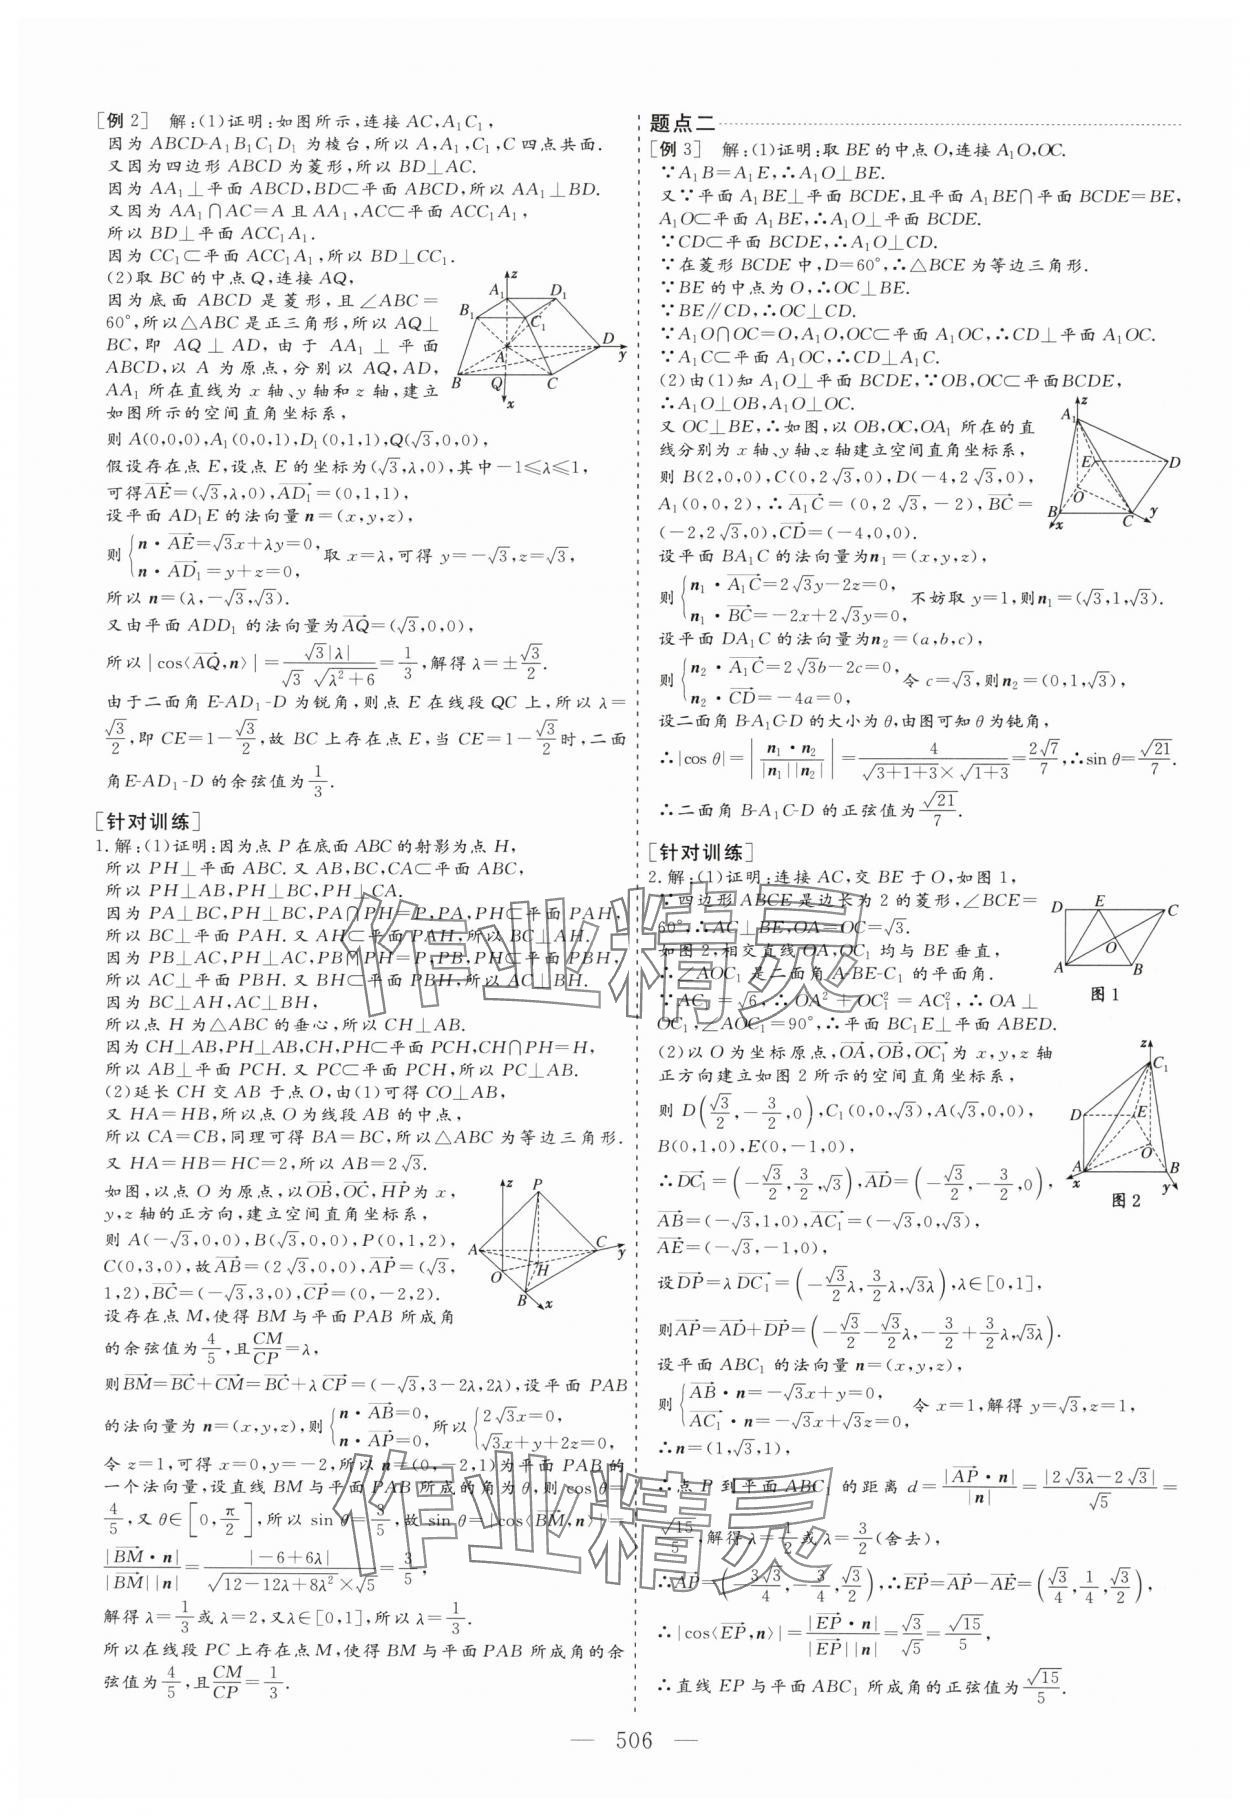 [例 2] 解:(1)证明:如图所示,连接 AC,A₁C₁,
因为 ABCD-A₁B₁C₁D₁ 为棱台,所以 A,A₁,C₁,C 四点共面.
又因为四边形 ABCD 为菱形,所以 BD⊥AC.
因为 AA₁⊥平面 ABCD,BD⊂平面 ABCD,所以 AA₁⊥BD.
又因为 AA₁∩AC=A 且 AA₁,AC⊂平面 ACC₁A₁,
所以 BD⊥平面 ACC₁A₁.
因为 CC₁⊂平面 ACC₁A₁,所以 BD⊥CC₁.
(2)取 BC 的中点 Q,连接 AQ,
因为底面 ABCD 是菱形,且∠ABC=
60°,所以△ABC 是正三角形,所以 AQ⊥
BC,即 AQ⊥AD,由于 AA₁⊥平面
ABCD,以 A 为原点,分别以 AQ,AD,
AA₁ 所在直线为 x 轴、y 轴和 z 轴,建立
如图所示的空间直角坐标系,
z
A₁ D₁
B₁ C₁
A D y
B Q C
x
则 A(0,0,0),A₁(0,0,1),D₁(0,1,1),Q(√3,0,0),
假设存在点 E,设点 E 的坐标为(√3,λ,0),其中-1≤λ≤1,
可得AE→=(√3,λ,0),AD₁→=(0,1,1),
设平面 AD₁E 的法向量 n=(x,y,z),
则{n·AE→=√3x+λy=0, n·AD₁→=y+z=0, 取 x=λ,可得 y=-√3,z=√3,
所以 n=(λ,-√3,√3).
又由平面 ADD₁ 的法向量为AQ→=(√3,0,0),
所以|cos⟨AQ→,n⟩|=√3|λ|/(√3 √(λ²+6))=1/3,解得 λ=±√3/2.
由于二面角 E-AD₁-D 为锐角,则点 E 在线段 QC 上,所以 λ=
√3/2,即 CE=1-√3/2,故 BC 上存在点 E,当 CE=1-√3/2时,二面
角E-AD₁-D 的余弦值为1/3.
[针对训练]
1.解:(1)证明:因为点 P 在底面 ABC 的射影为点 H,
所以 PH⊥平面 ABC.又 AB,BC,CA⊂平面 ABC,
所以 PH⊥AB,PH⊥BC,PH⊥CA.
因为 PA⊥BC,PH⊥BC,PA∩PH=P,PA,PH⊂平面 PAH,
所以 BC⊥平面 PAH.又 AH⊂平面 PAH,所以 BC⊥AH.
因为 PB⊥AC,PH⊥AC,PB∩PH=P,PB,PH⊂平面 PBH,
所以 AC⊥平面 PBH.又 BH⊂平面 PBH,所以 AC⊥BH.
因为 BC⊥AH,AC⊥BH,
所以点 H 为△ABC 的垂心,所以 CH⊥AB.
因为 CH⊥AB,PH⊥AB,CH,PH⊂平面 PCH,CH∩PH=H,
所以 AB⊥平面 PCH.又 PC⊂平面 PCH,所以 PC⊥AB.
(2)延长 CH 交 AB 于点 O,由(1)可得 CO⊥AB,
又 HA=HB,所以点 O 为线段 AB 的中点,
所以 CA=CB,同理可得 BA=BC,所以△ABC 为等边三角形.
又 HA=HB=HC=2,所以 AB=2√3.
如图,以点 O 为原点,以OB→,OC→,HP→为 x,
y,z 轴的正方向,建立空间直角坐标系,
则 A(-√3,0,0),B(√3,0,0),P(0,1,2),
C(0,3,0),故AB→=(2√3,0,0),AP→=(√3,
1,2),BC→=(-√3,3,0),CP→=(0,-2,2).
z P
A C y
O H
B x
设存在点 M,使得 BM 与平面 PAB 所成角
的余弦值为4/5,且CM/CP=λ,
则BM→=BC→+CM→=BC→+λCP→=(-√3,3-2λ,2λ),设平面 PAB
的法向量为 n=(x,y,z),则{n·AB→=0, n·AP→=0, 所以{2√3x=0, √3x+y+2z=0,
令 z=1,可得 x=0,y=-2,所以 n=(0,-2,1)为平面 PAB 的
一个法向量,设直线 BM 与平面 PAB 所成的角为 θ,则 cos θ=
4/5,又 θ∈[0,π/2],所以 sin θ=3/5,故 sin θ=|cos⟨BM→,n⟩|=
|BM→·n|/(|BM→||n|)=|-6+6λ|/(√(12-12λ+8λ²)×√5)=3/5,
解得 λ=1/3或 λ=2,又λ∈[0,1],所以 λ=1/3.
所以在线段 PC 上存在点 M,使得 BM 与平面 PAB 所成角的余
弦值为4/5,且CM/CP=1/3.
题点二
[例 3] 解:(1)证明:取 BE 的中点 O,连接 A₁O,OC.
∵A₁B=A₁E,∴A₁O⊥BE.
又∵平面 A₁BE⊥平面 BCDE,且平面 A₁BE∩平面 BCDE=BE,
A₁O⊂平面 A₁BE,∴A₁O⊥平面 BCDE.
∵CD⊂平面 BCDE,∴A₁O⊥CD.
∵在菱形 BCDE 中,D=60°,∴△BCE 为等边三角形.
∵BE 的中点为 O,∴OC⊥BE.
∵BE∥CD,∴OC⊥CD.
∵A₁O∩OC=O,A₁O,OC⊂平面 A₁OC,∴CD⊥平面 A₁OC.
∵A₁C⊂平面 A₁OC,∴CD⊥A₁C.
(2)由(1)知 A₁O⊥平面 BCDE,∵OB,OC⊂平面BCDE,
∴A₁O⊥OB,A₁O⊥OC.
又 OC⊥BE,∴如图,以 OB,OC,OA₁ 所在的直
线分别为 x 轴、y 轴、z轴建立空间直角坐标系,
则 B(2,0,0),C(0,2√3,0),D(-4,2√3,0),
A₁(0,0,2),∴A₁C→=(0,2√3,-2),BC→=
(-2,2√3,0),CD→=(-4,0,0).
z
A₁
E D
O
B C y
x
设平面 BA₁C 的法向量为n₁=(x,y,z),
则{n₁·A₁C→=2√3y-2z=0, n₁·BC→=-2x+2√3y=0, 不妨取 y=1,则n₁=(√3,1,√3).
设平面 DA₁C 的法向量为n₂=(a,b,c),
则{n₂·A₁C→=2√3b-2c=0, n₂·CD→=-4a=0, 令 c=√3,则n₂=(0,1,√3),
设二面角 B-A₁C-D 的大小为 θ,由图可知θ为钝角,
∴|cos θ|=|n₁·n₂/(|n₁||n₂|)|=4/(√(3+1+3)×√(1+3))=2√7/7,∴sin θ=√21/7.
∴二面角 B-A₁C-D 的正弦值为√21/7.
[针对训练]
2.解:(1)证明:连接 AC,交 BE 于 O,如图 1,
∵四边形 ABCE 是边长为 2 的菱形,∠BCE=
60°,∴AC⊥BE,OA=OC=√3.
如图 2,相交直线 OA,OC₁ 均与 BE 垂直,
∴∠AOC₁ 是二面角 A-BE-C₁ 的平面角.
∵AC₁=√6,∴OA²+OC₁²=AC₁²,∴OA⊥
OC₁,∠AOC₁=90°,∴平面 BC₁E⊥平面 ABED.
D E C
O
A B
图 1
(2)以 O 为坐标原点,OA→,OB→,OC₁→为 x,y,z 轴
正方向建立如图 2 所示的空间直角坐标系,
则 D(√3/2,-3/2,0),C₁(0,0,√3),A(√3,0,0),
B(0,1,0),E(0,-1,0),
∴DC₁→=(-√3/2,3/2,√3),AD→=(-√3/2,-3/2,0),
AB→=(-√3,1,0),AC₁→=(-√3,0,√3),
AE→=(-√3,-1,0),
z
C₁
D E
O
A B
x y
图 2
设DP→=λDC₁→=(-√3/2λ,3/2λ,√3λ),λ∈[0,1],
则AP→=AD→+DP→=(-√3/2-√3/2λ,-3/2+3/2λ,√3λ).
设平面 ABC₁ 的法向量为 n=(x,y,z),
则{AB→·n=-√3x+y=0, AC₁→·n=-√3x+√3z=0, 令 x=1,解得 y=√3,z=1,
∴n=(1,√3,1),
∴点 P 到平面 ABC₁ 的距离 d=|AP→·n|/|n|=|2√3λ-2√3|/√5=
√15/5,解得 λ=1/2或 λ=3/2(舍去),
∴AP→=(-3√3/4,-3/4,√3/2),∴EP→=AP→-AE→=(√3/4,1/4,√3/2),
∴|cos⟨EP→,n⟩|=|EP→·n|/(|EP→||n|)=√3/√5=√15/5,
∴直线 EP 与平面 ABC₁ 所成角的正弦值为√15/5.
— 506 —
作业精灵
作业精灵